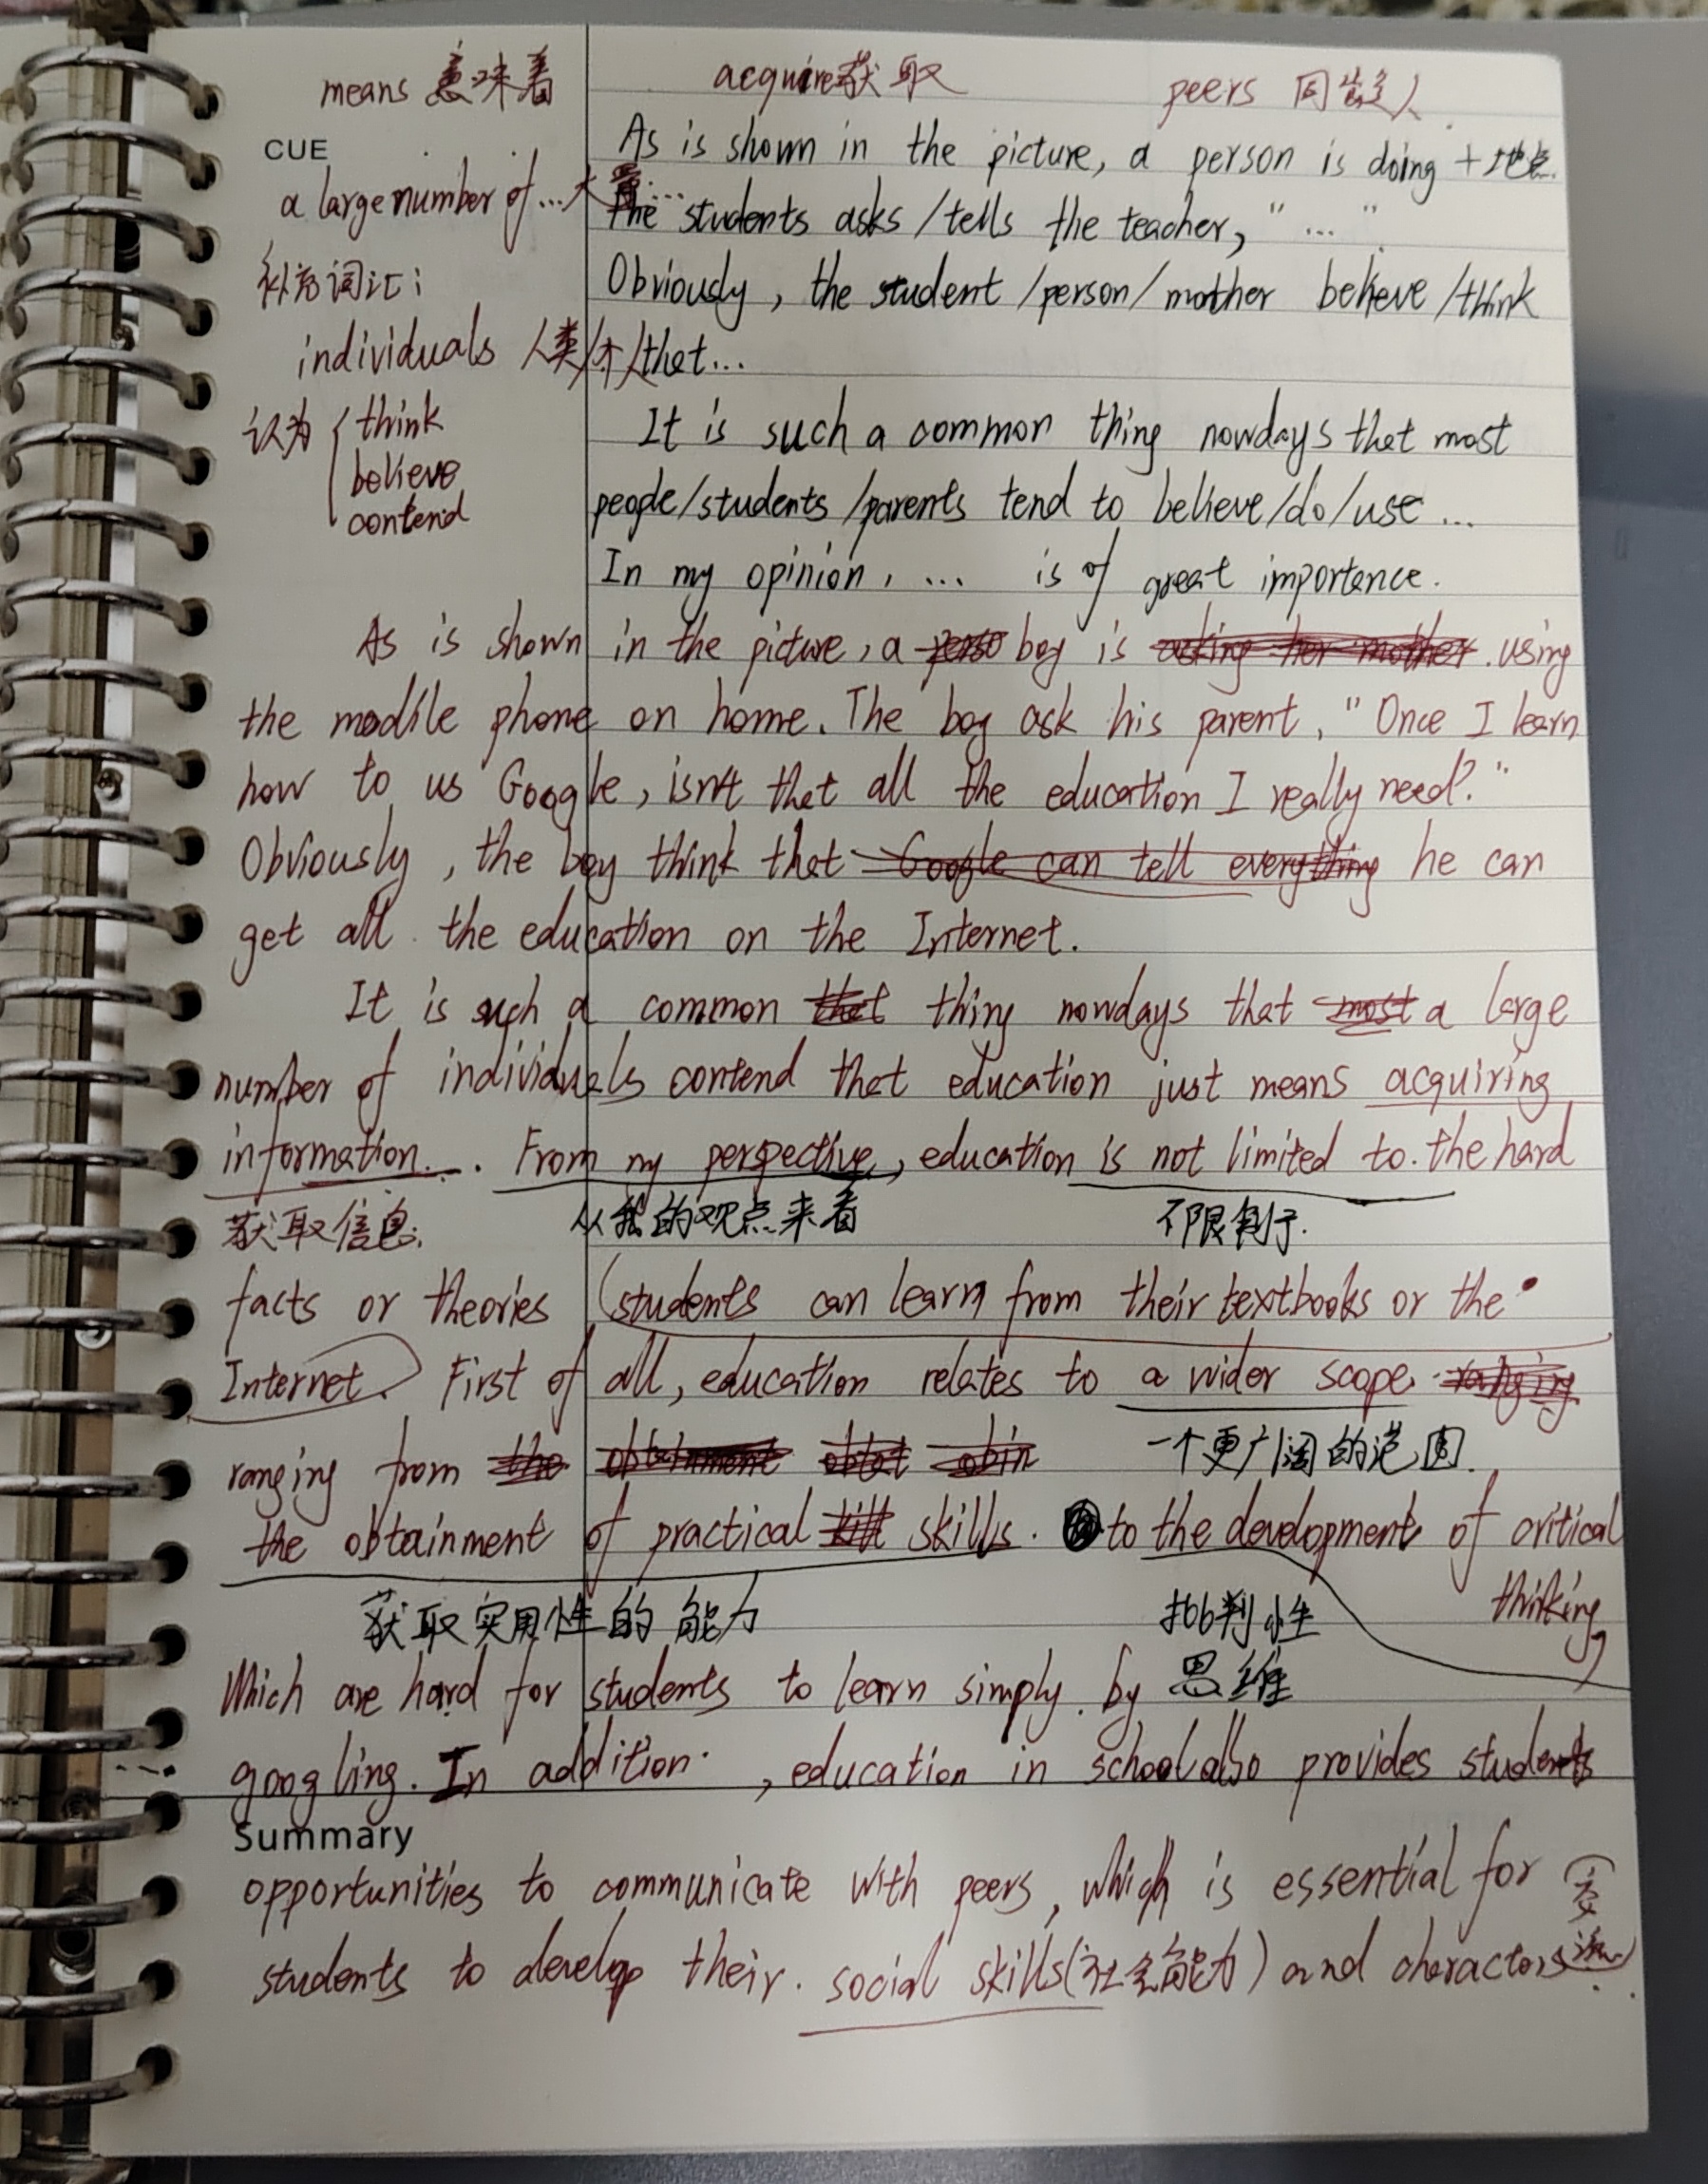 means 意味着 acquire获取 peers 同龄人
CUE
As is shown in the picture, a person is doing + 地点.
a large number of ... 大量...
The students asks /tells the teacher, "..."
补充词汇:
Obviously, the student /person/mother believe /think
individuals 人类/个人
that...
认为 think
believe
contend
It is such a common thing nowdays that most
people/students /parents tend to believe/do/use ...
In my opinion, ... is of great importence.
As is shown in the picture, a boy is using
the modile phone on home. The boy ask his parent, "Once I learn
how to us Google, isn't that all the education I really need?"
Obviously, the boy think that he can
get all the education on the Internet.
It is such a common thing nowdays that a large
number of individuals contend that education just means acquiring
information... From my perspective, education is not limited to. the hard
获取信息. 从我的观点来看 不限制于.
facts or theories (students can learn from their textbooks or the
Internet.) First of all, education relates to a wider scope.
一个更广阔的范围.
ranging from
the obtainment of practical skills. to the development of critical
thinking,
获取实用性的能力 批判性
思维
Which are hard for students to learn simply by
googling. In addition , education in school also provides students
Summary
opportunities to communicate with peers, which is essential for
students to develop their. social skills(社会能力) and charactors